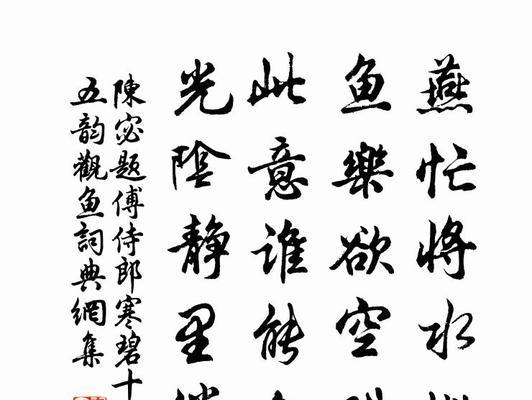 燕忙将水
鱼樂欲空
此意谁能
光陰静里
陳宓题傅侍郎寒碧十
五韵觀鱼詞典網集